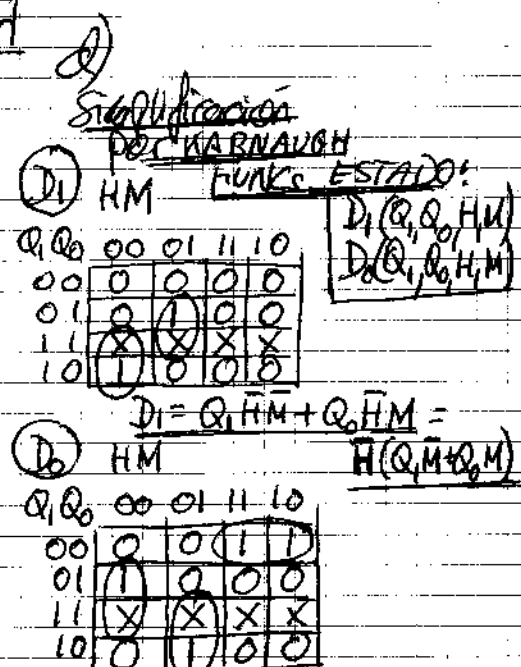 d)
Simplificación
por KARNAUGH
FUNC. ESTADO:
D1 HM
D1(Q1,Q0,H,M)
D0(Q1,Q0,H,M)
Q1Q0 00 01 11 10
00 0 0 0 0
01 0 1 0 0
11 X X X X
10 1 0 0 0
D1 = Q1H̄M̄ + Q0H̄M =
H̄(Q1M̄+Q0M)
D0 HM
Q1Q0 00 01 11 10
00 0 0 1 1
01 1 0 0 0
11 X X X X
10 0 1 0 0